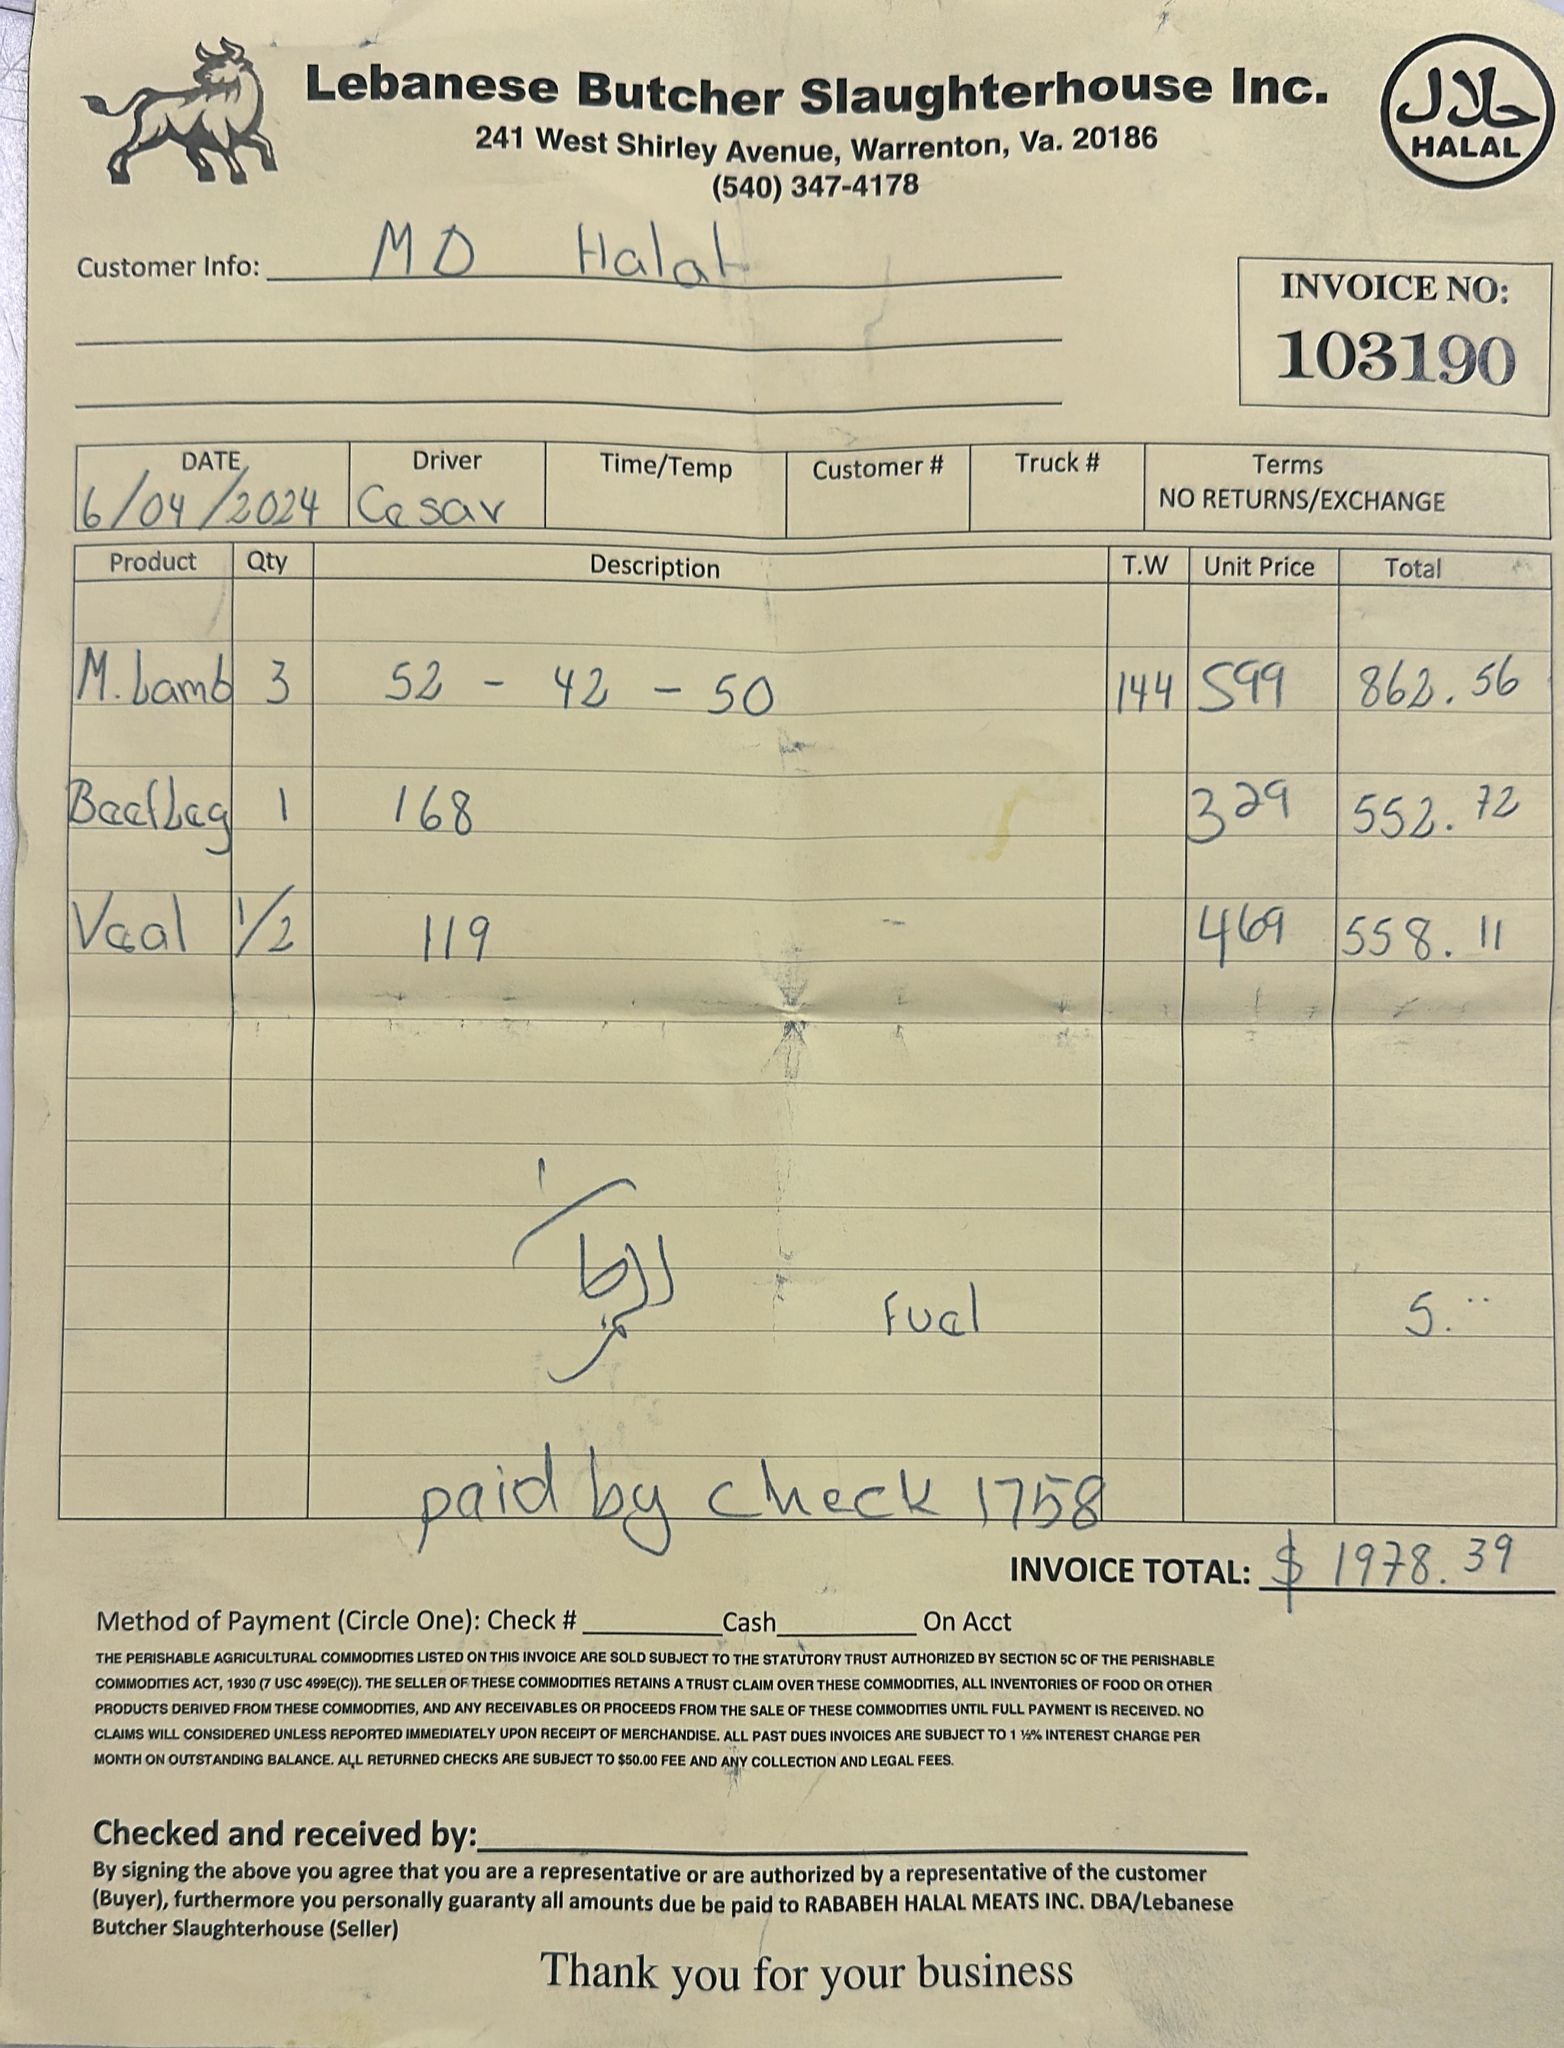 Lebanese Butcher Slaughterhouse Inc.
241 West Shirley Avenue, Warrenton, Va. 20186
(540) 347-4178
حلال
HALAL
Customer Info: MD Halal
INVOICE NO:
103190
DATE Driver Time/Temp Customer # Truck # Terms
6/04/2024 Cesar NO RETURNS/EXCHANGE
Product Qty Description T.W Unit Price Total
M. Lamb 3 52 - 42 - 50 144 599 862.56
Beef Leg 1 168 329 552.72
Veal 1/2 119 469 558.11
Fuel 5.--
paid by check 1758
INVOICE TOTAL: $ 1978.39
Method of Payment (Circle One): Check # Cash On Acct
THE PERISHABLE AGRICULTURAL COMMODITIES LISTED ON THIS INVOICE ARE SOLD SUBJECT TO THE STATUTORY TRUST AUTHORIZED BY SECTION 5C OF THE PERISHABLE
COMMODITIES ACT, 1930 (7 USC 499E(C)). THE SELLER OF THESE COMMODITIES RETAINS A TRUST CLAIM OVER THESE COMMODITIES, ALL INVENTORIES OF FOOD OR OTHER
PRODUCTS DERIVED FROM THESE COMMODITIES, AND ANY RECEIVABLES OR PROCEEDS FROM THE SALE OF THESE COMMODITIES UNTIL FULL PAYMENT IS RECEIVED. NO
CLAIMS WILL CONSIDERED UNLESS REPORTED IMMEDIATELY UPON RECEIPT OF MERCHANDISE. ALL PAST DUES INVOICES ARE SUBJECT TO 1 ½% INTEREST CHARGE PER
MONTH ON OUTSTANDING BALANCE. ALL RETURNED CHECKS ARE SUBJECT TO $50.00 FEE AND ANY COLLECTION AND LEGAL FEES.
Checked and received by:
By signing the above you agree that you are a representative or are authorized by a representative of the customer
(Buyer), furthermore you personally guaranty all amounts due be paid to RABABEH HALAL MEATS INC. DBA/Lebanese
Butcher Slaughterhouse (Seller)
Thank you for your business